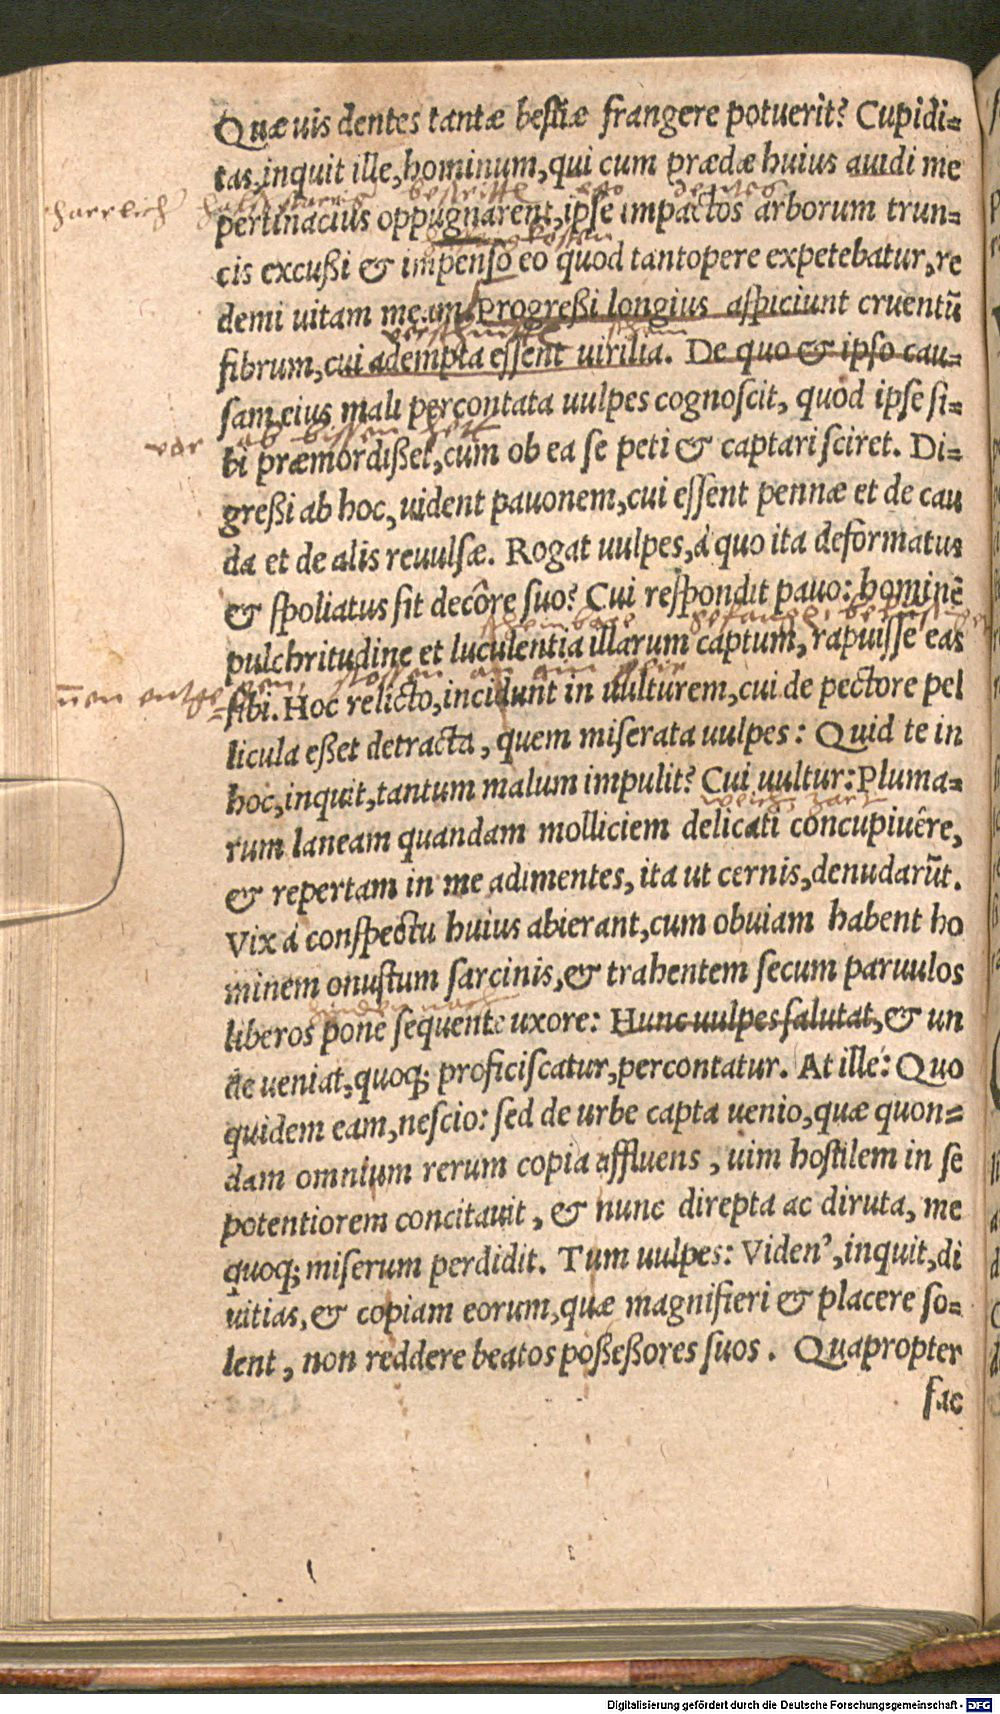 Quæ uis dentes tantæ bestiæ frangere potuerit? Cupidi=
tas, inquit ille, hominum, qui cum prædæ huius auidi me
harrlich halsstarrig bestritte dentes
pertinacius oppugnarent, ipse impactos arborum trun=
cis excußi & impenso eo quod tantopere expetebatur, re
demi uitam meam. Progreßi longius aspiciunt cruentũ
fibrum, cui adempta essent uirilia. De quo & ipso cau=
sam eius mali percontata uulpes cognoscit, quod ipse si=
vor ab bissen hett
bi præmordißet, cum ob ea se peti & captari sciret. Di=
greßi ab hoc, uident pauonem, cui essent pennæ et de cau
da et de alis reuulsæ. Rogat uulpes, à quo ita deformatus
& spoliatus sit decôre suo? Cui respondit pauo: hominẽ
pulchritudine et luculentia illarum captum, rapuisse eas
stossen an ein
sibi. Hoc relicto, incidunt in uulturem, cui de pectore pel
licula eßet detracta, quem miserata uulpes: Quid te in
hoc, inquit, tantum malum impulit? Cui uultur: Pluma=
weich, zart
rum laneam quandam molliciem delicati concupiuêre,
& repertam in me adimentes, ita ut cernis, denudarũt.
Vix à conspectu huius abierant, cum obuiam habent ho
minem onustum sarcinis, & trahentem secum paruulos
hinden nach
liberos pone sequente uxore: Hunc uulpes salutat, & un
de ueniat, quoq; proficiscatur, percontatur. At ille: Quo
quidem eam, nescio: sed de urbe capta uenio, quæ quon=
dam omnium rerum copia affluens, uim hostilem in se
potentiorem concitauit, & nunc direpta ac diruta, me
quoq; miserum perdidit. Tum uulpes: Viden', inquit, di
uitias, & copiam eorum, quæ magnifieri & placere so=
lent, non reddere beatos poßeßores suos. Quapropter
fac
Digitalisierung gefördert durch die Deutsche Forschungsgemeinschaft - DFG